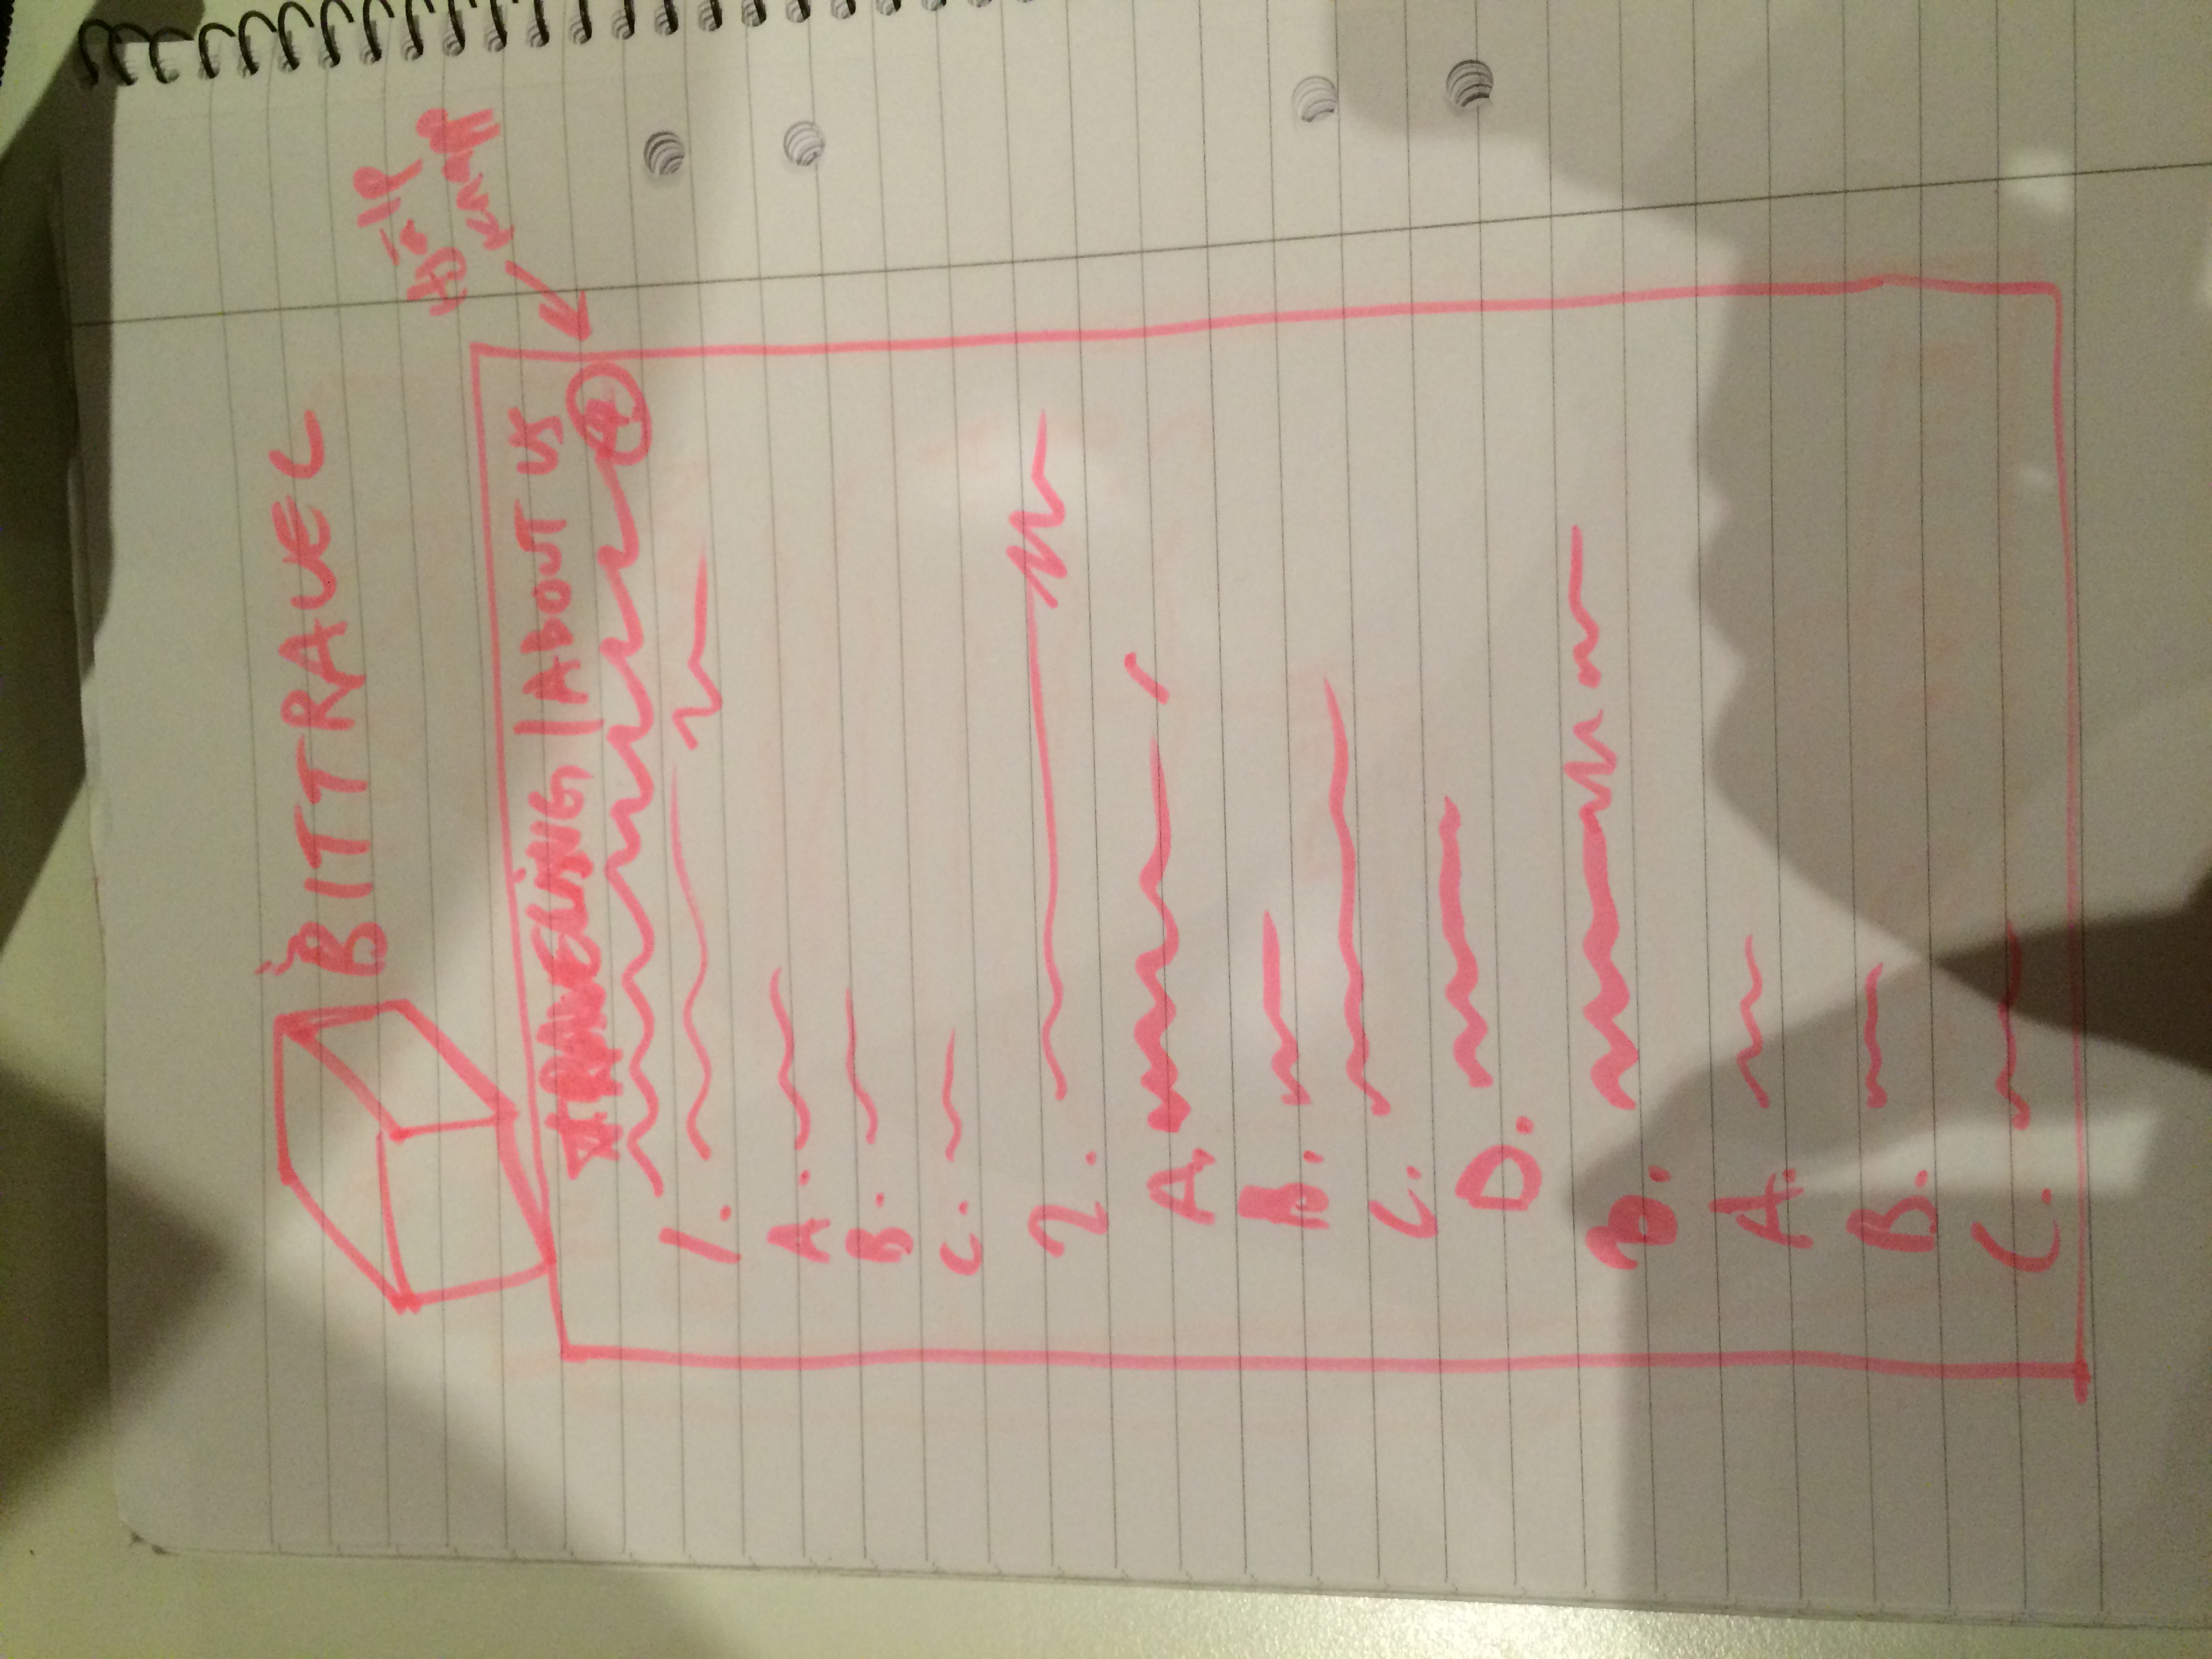 BITTRAVEL
TRAVELING | ABOUT US
1.
A.
B.
C.
2.
A.
B.
C.
D.
3.
A.
B.
C.